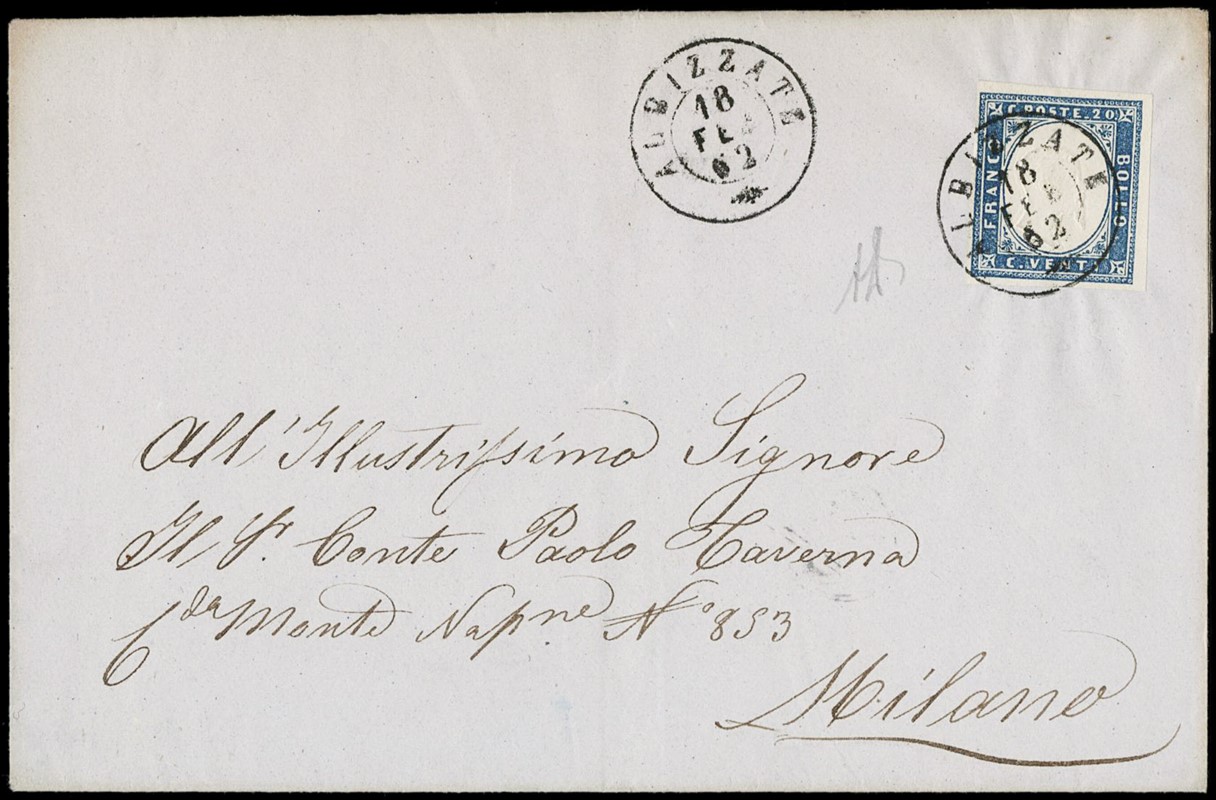 ALBIZZATE
18
FEB
62
C. POSTE. 20
FRANCO
BOLLO
C. VENTI
ALBIZZATE
18
FEB
62
All'Illustrissimo Signore
Il Sr. Conte Paolo Taverna
Cda Monte Napne No 853
Milano